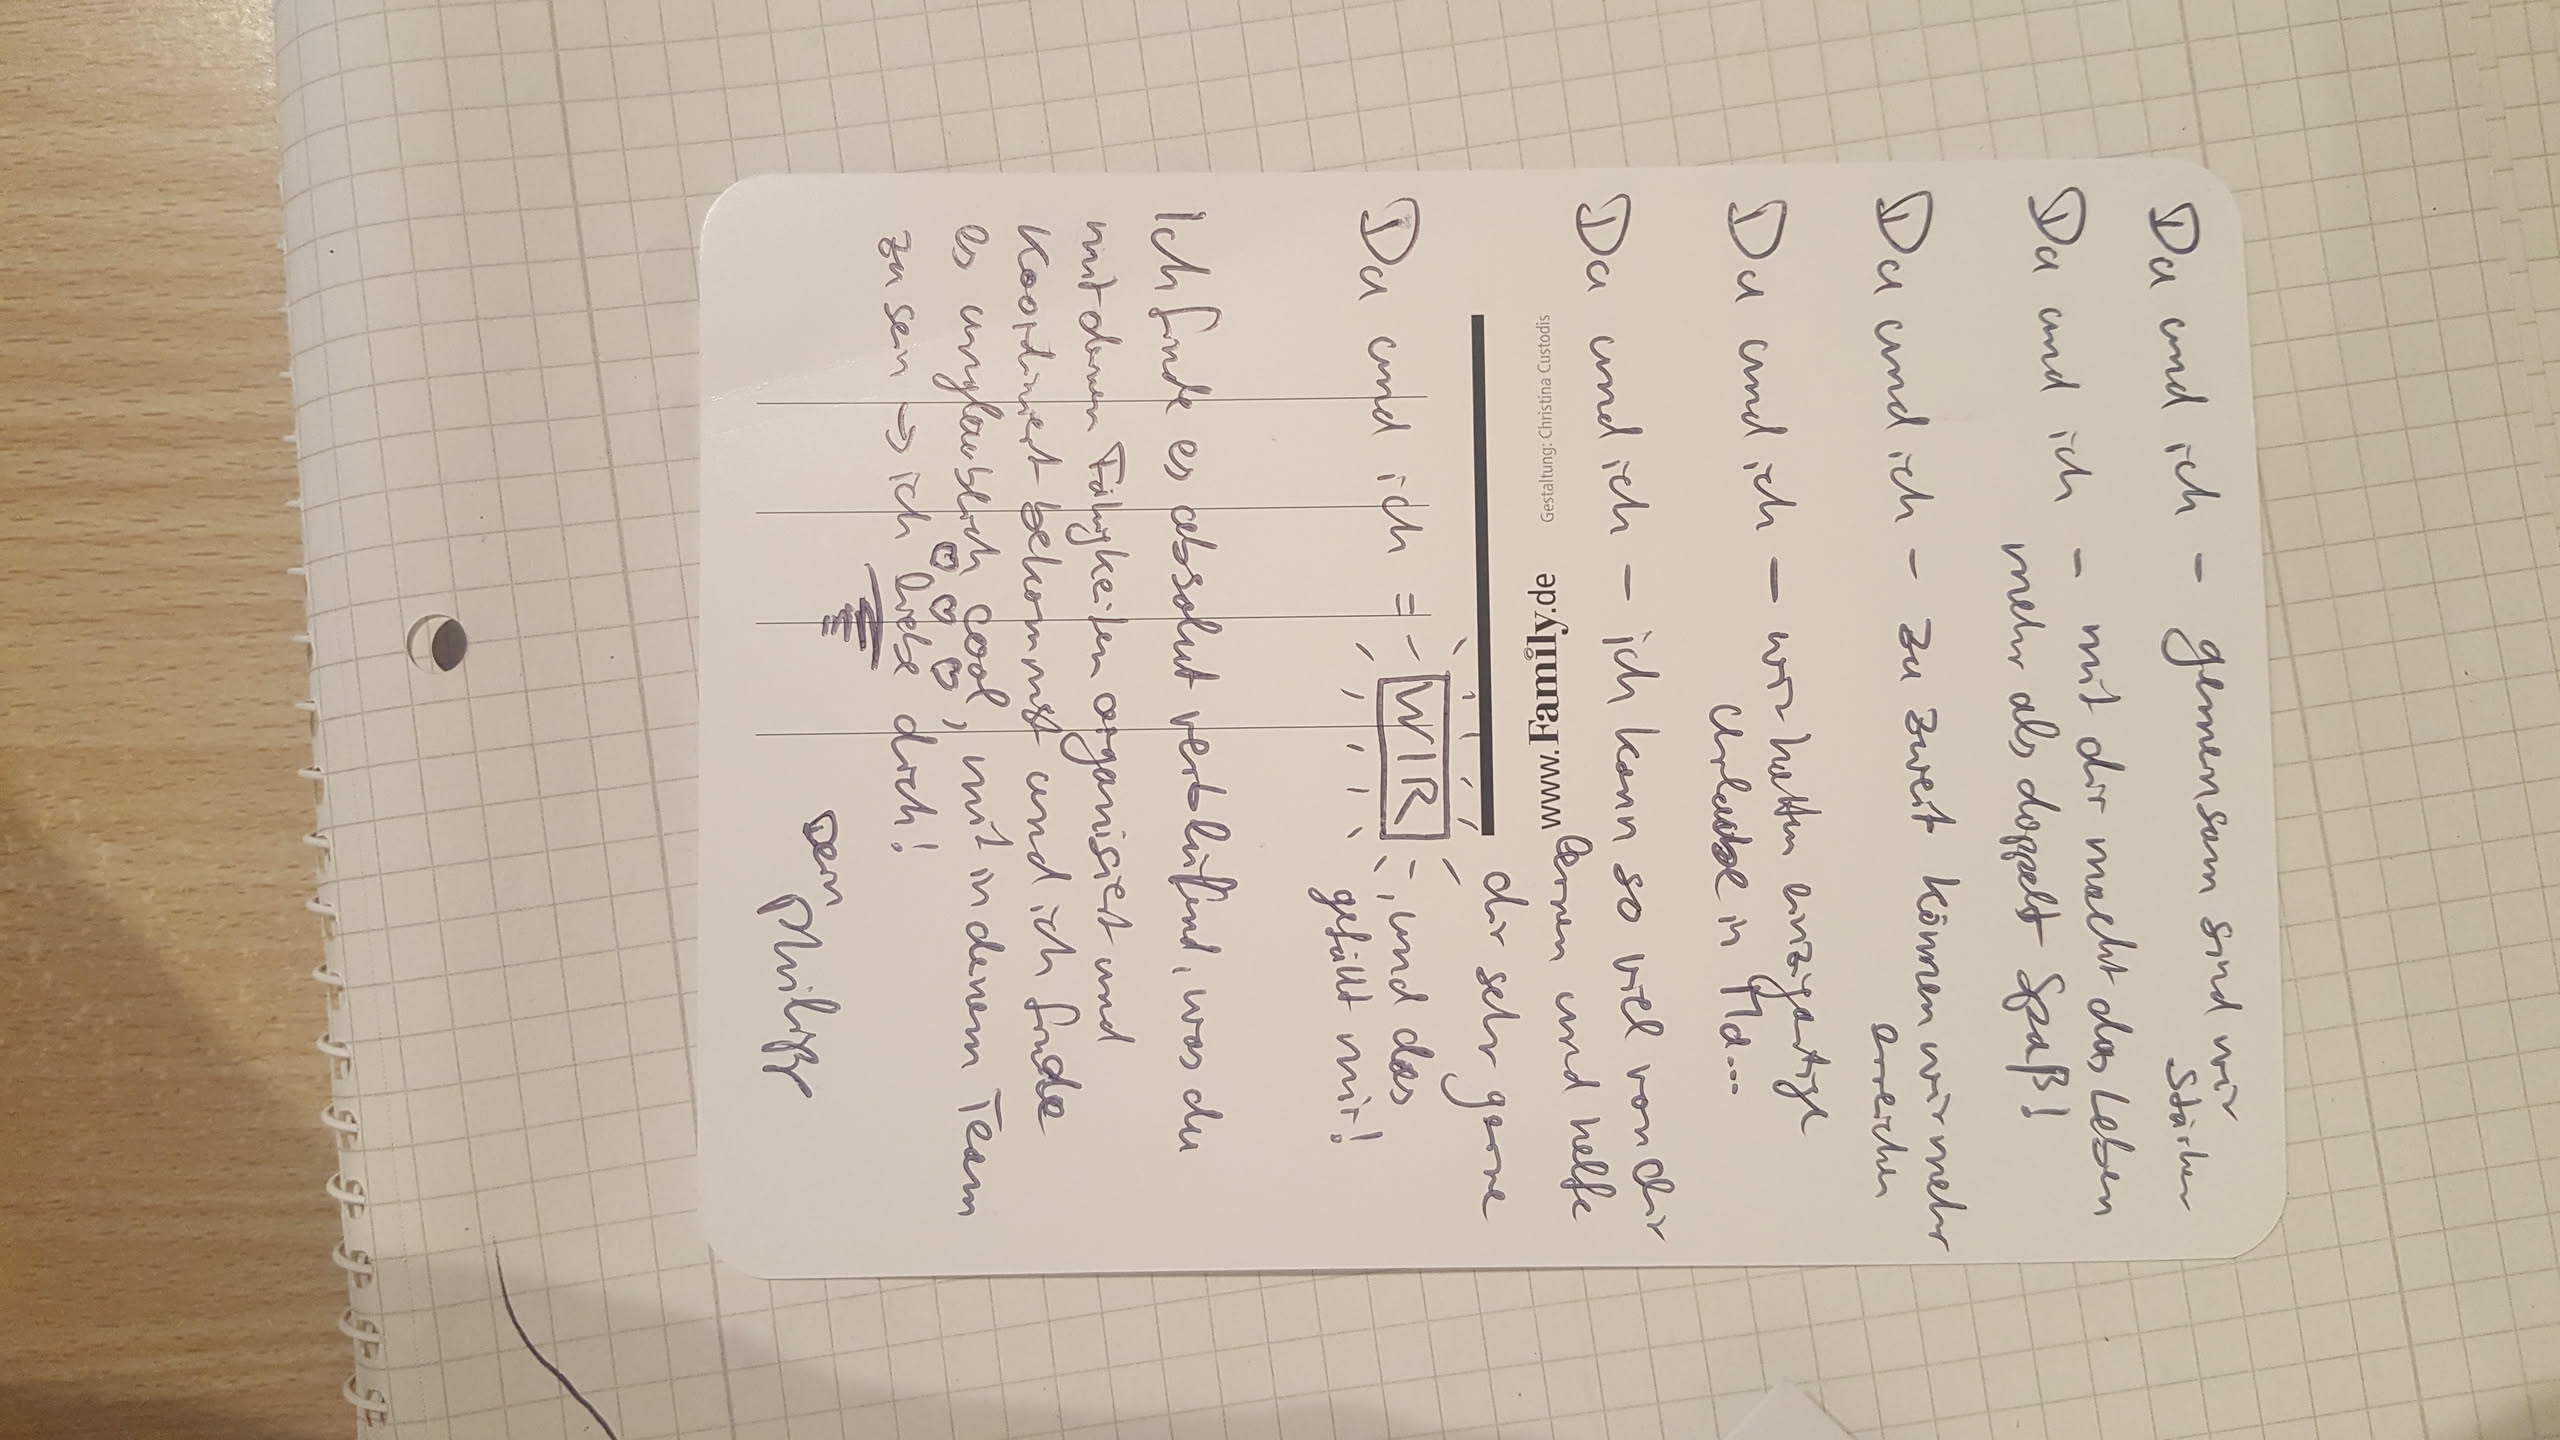 Du und ich - gemeinsam sind wir
stärker
Du und ich - mit dir macht das Leben
mehr als doppelt Spaß!
Du und ich - zu zweit können wir mehr
erreichen
Du und ich - wir hatten einzigartige
Urlaube in
Du und ich - ich kann so viel von dir
lernen und helfe
dir sehr gerne
Gestaltung: Christina Custodis
www.Family.de
Du und ich = WIR, und das
gefällt mir!
Ich finde es absolut verblüffend, was du
mit deinen Fähigkeiten organisiert und
koordiniert bekommst und ich finde
es unglaublich cool, mit in deinem Team
zu sein → ich liebe dich!
Dein
Philipp